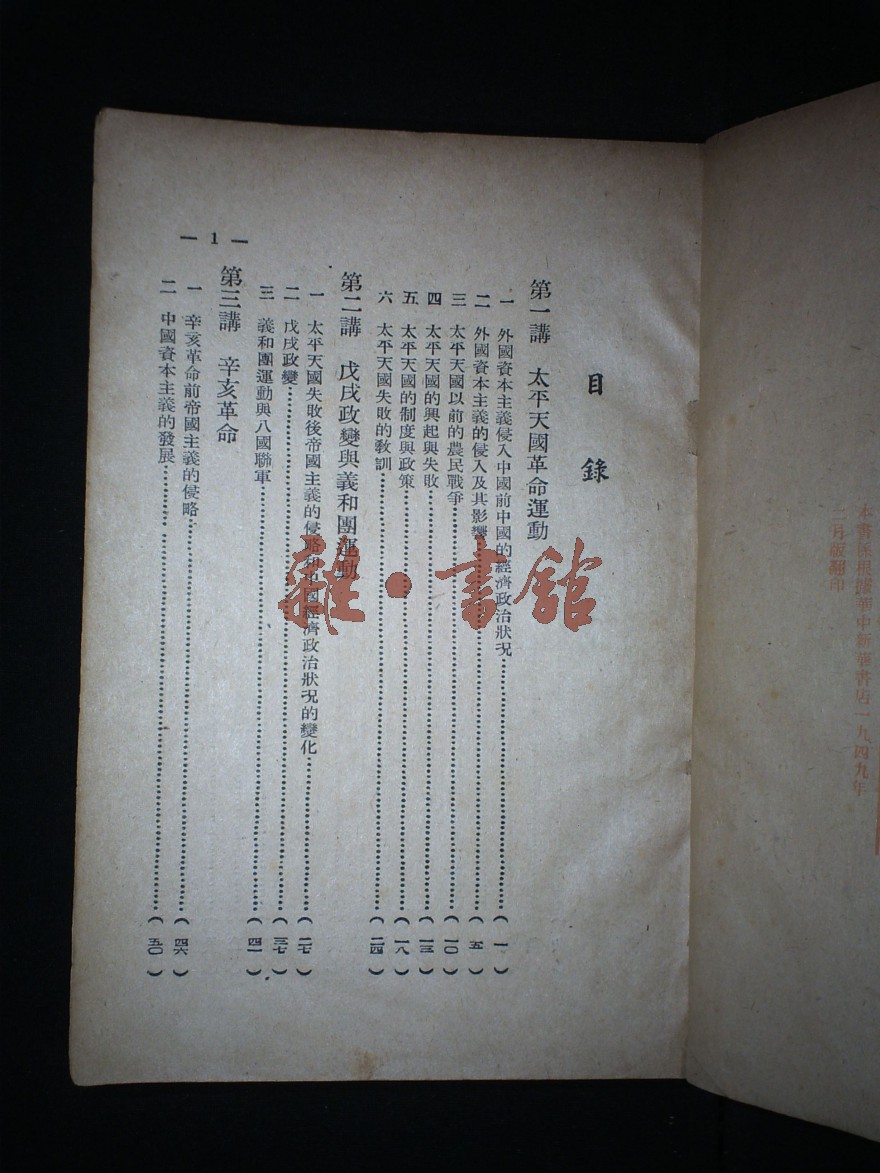 本書係根據華中新華書店一九四九年
二月版翻印
目錄
第一講 太平天國革命運動
一 外國資本主義侵入中國前中國的經濟政治狀况………(一)
二 外國資本主義的侵入及其影響………(五)
三 太平天國以前的農民戰爭………(一〇)
四 太平天國的興起與失敗………(一三)
五 太平天國的制度與政策………(一八)
六 太平天國失敗的敎訓………(二四)
第二講 戊戌政變與義和團運動
一 太平天國失敗後帝國主義的侵略和中國經濟政治狀况的變化………(二七)
二 戊戌政變………(三七)
三 義和團運動與八國聯軍………(四一)
第三講 辛亥革命
一 辛亥革命前帝國主義的侵略………(四六)
二 中國資本主義的發展………(五〇)
— 1 —
雜·書館